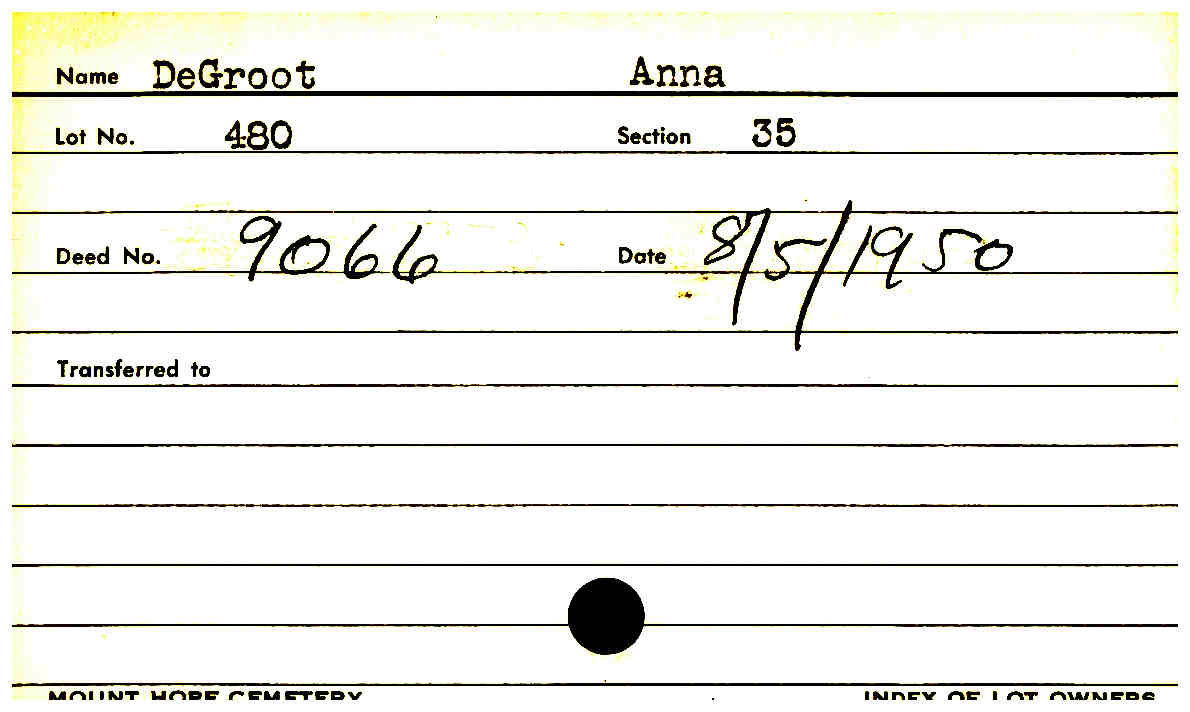 Name DeGroot Anna
Lot No. 480 Section 35
Deed No. 9066 Date 8/5/1950
Transferred to
MOUNT HOPE CEMETERY INDEX OF LOT OWNERS